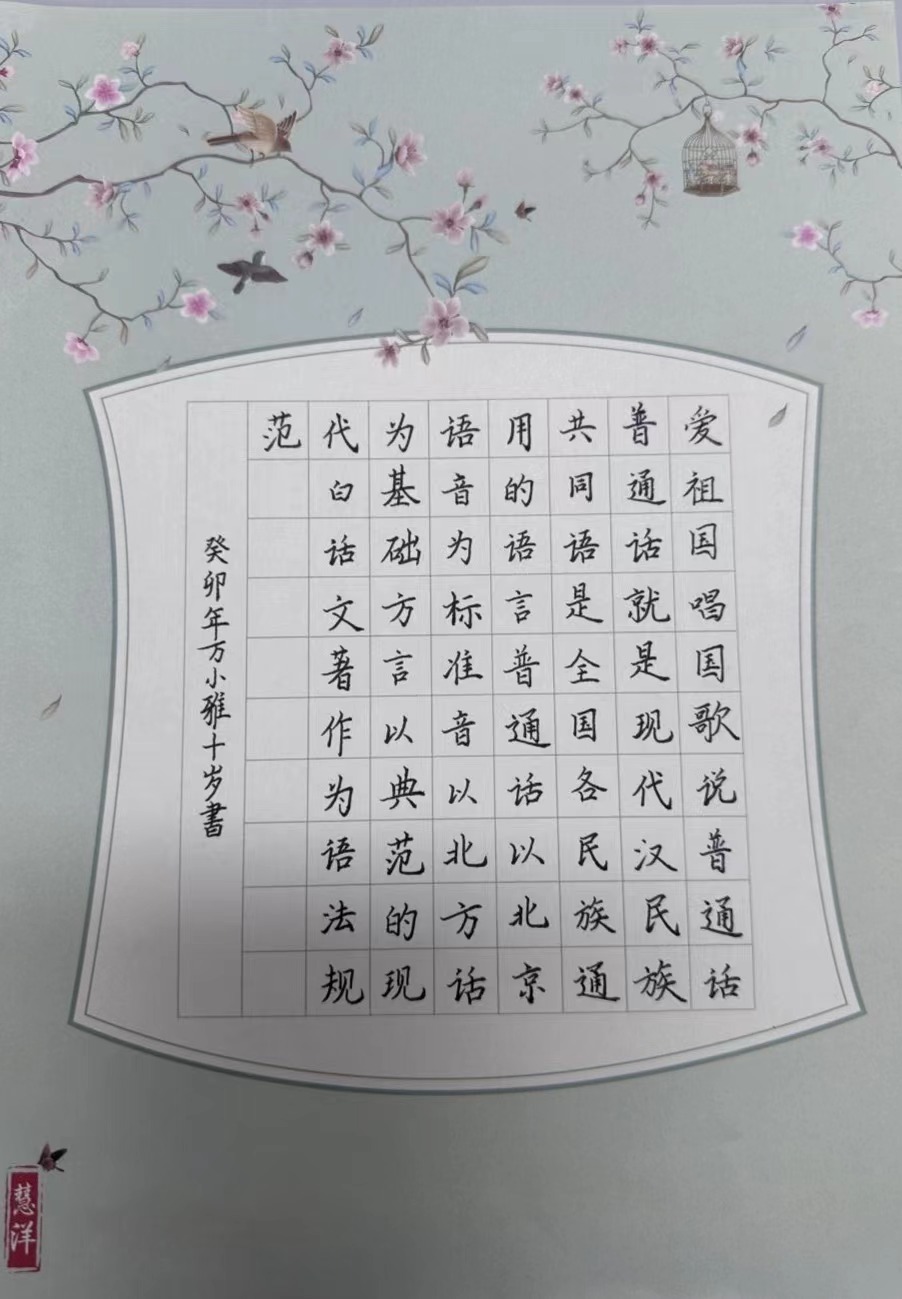 爱祖国唱国歌说普通话
普通话就是现代汉民族
共同语是全国各民族通
用的语言普通话以北京
语音为标准音以北方话
为基础方言以典范的现
代白话文著作为语法规
范
癸卯年万小雅十岁書
慧洋